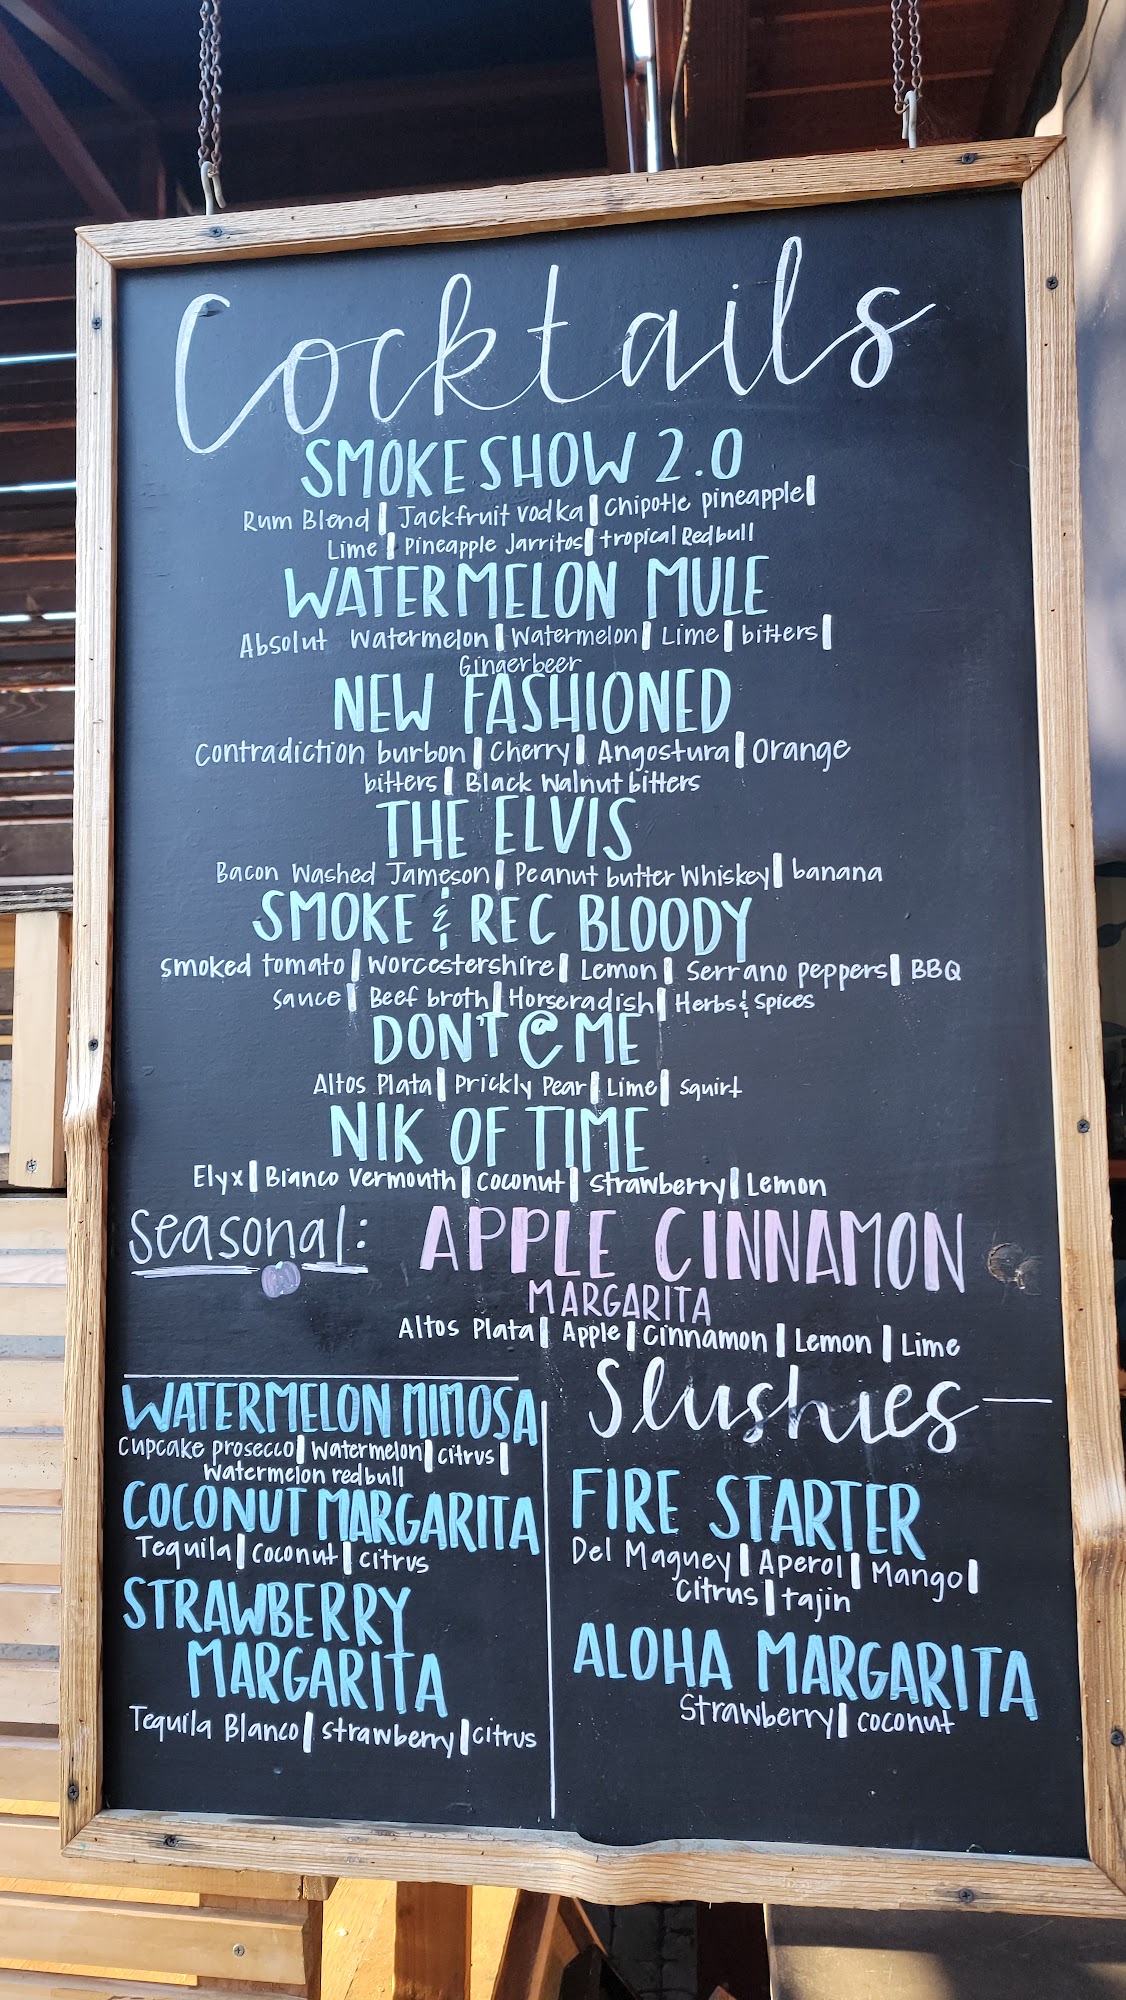 Cocktails
SMOKESHOW 2.0
Rum Blend | Jackfruit vodka | Chipotle pineapple |
Lime | Pineapple Jarritos | tropical Redbull
WATERMELON MULE
Absolut Watermelon | Watermelon | Lime | bitters |
Gingerbeer
NEW FASHIONED
Contradiction burbon | Cherry | Angostura | Orange
bitters | Black Walnut bitters
THE ELVIS
Bacon Washed Jameson | Peanut butter Whiskey | banana
SMOKE & REC BLOODY
Smoked tomato | Worcestershire | Lemon | Serrano peppers | BBQ
Sauce | Beef broth | Horseradish | Herbs & Spices
DON'T @ ME
Altos Plata | Prickly Pear | Lime | Squirt
NIK OF TIME
Elyx | Bianco Vermouth | Coconut | Strawberry | Lemon
Seasonal: APPLE CINNAMON
MARGARITA
Altos Plata | Apple | Cinnamon | Lemon | Lime
WATERMELON MIMOSA
Cupcake prosecco | Watermelon | citrus |
Watermelon redbull
COCONUT MARGARITA
Tequila | Coconut | citrus
STRAWBERRY
MARGARITA
Tequila Blanco | strawberry | citrus
Slushies
FIRE STARTER
Del Maguey | Aperol | Mango |
Citrus | tajin
ALOHA MARGARITA
Strawberry | coconut